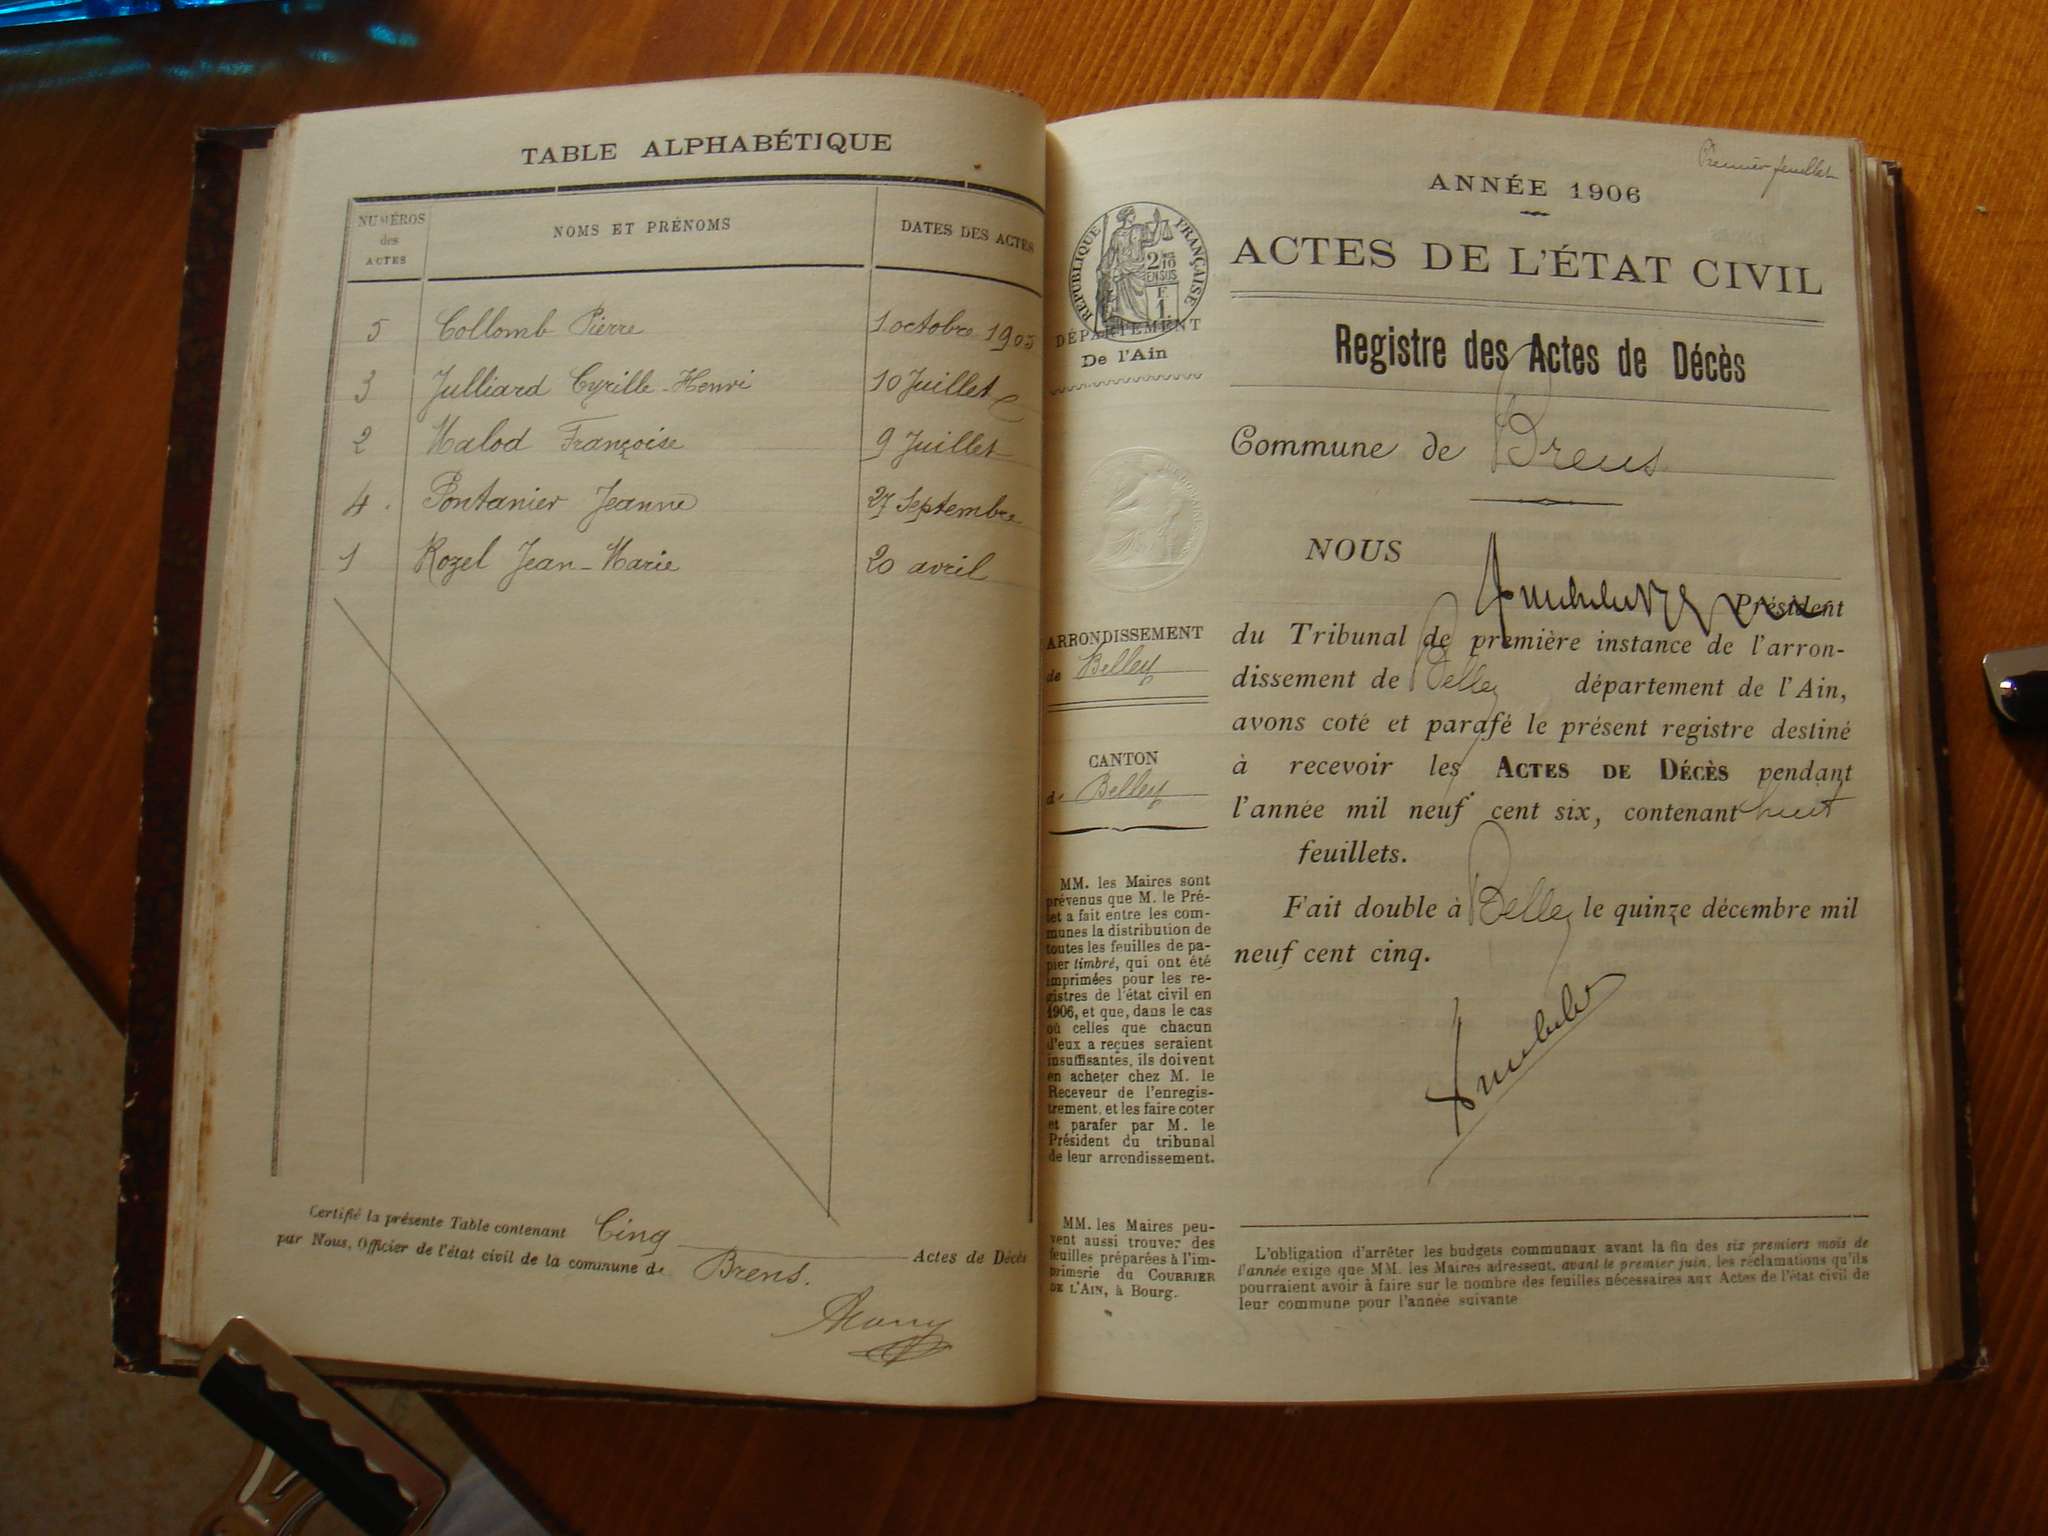 TABLE ALPHABÉTIQUE
NUMÉROS des ACTES
NOMS ET PRÉNOMS
DATES DES ACTES
5 Collomb Pierre 1 octobre 1905
3 Julliard Cyrille-Henri 10 Juillet
2 Malod Françoise 9 Juillet
4 Pontanier Jeanne 27 Septembre
1 Rozel Jean-Marie 20 avril
Certifié la présente Table contenant Cinq Actes de Décès
par Nous, Officier de l'état civil de la commune de Brens.
Premier feuillet
ANNÉE 1906
ACTES DE L'ÉTAT CIVIL
RÉPUBLIQUE FRANÇAISE
2/10
EN SUS
F
1
DÉPARTEMENT
De l'Ain
Registre des Actes de Décès
Commune de Brens
NOUS
Président
du Tribunal de première instance de l'arron-
dissement de Belley département de l'Ain,
avons coté et parafé le présent registre destiné
à recevoir les ACTES DE DÉCÈS pendant
l'année mil neuf cent six, contenant huit
feuillets.
Fait double à Belley le quinze décembre mil
neuf cent cinq.
ARRONDISSEMENT
de Belley
CANTON
de Belley
MM. les Maires sont
prévenus que M. le Pré-
fet a fait entre les com-
munes la distribution de
toutes les feuilles de pa-
pier timbré, qui ont été
imprimées pour les re-
gistres de l'état civil en
1906, et que, dans le cas
où celles que chacun
d'eux a reçues seraient
insuffisantes, ils doivent
en acheter chez M. le
Receveur de l'enregis-
trement, et les faire coter
et parafer par M. le
Président du tribunal
de leur arrondissement.
MM. les Maires peu-
vent aussi trouver des
feuilles préparées à l'im-
primerie du COURRIER
DE L'AIN, à Bourg.
L'obligation d'arrêter les budgets communaux avant la fin des six premiers mois de
l'année exige que MM. les Maires adressent, avant le premier juin, les réclamations qu'ils
pourraient avoir à faire sur le nombre des feuilles nécessaires aux Actes de l'état civil de
leur commune pour l'année suivante